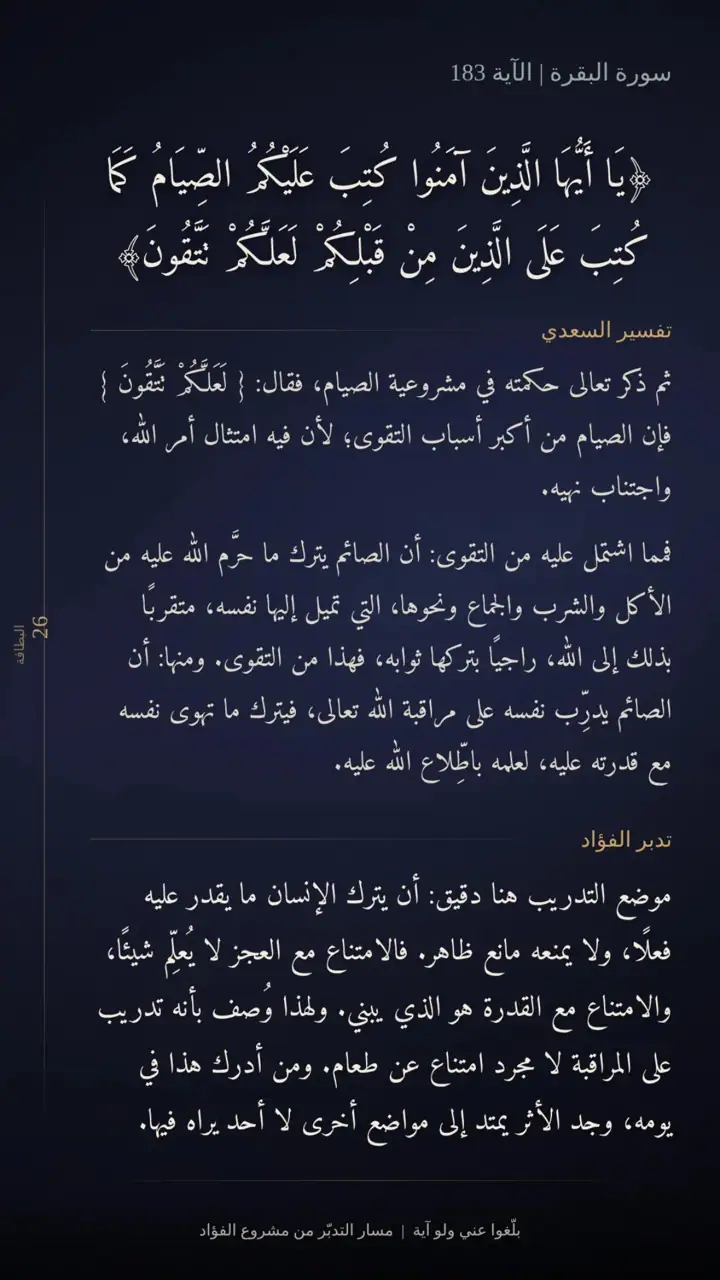 سورة البقرة | الآية 183
﴿يَا أَيُّهَا الَّذِينَ آمَنُوا كُتِبَ عَلَيْكُمُ الصِّيَامُ كَمَا
كُتِبَ عَلَى الَّذِينَ مِنْ قَبْلِكُمْ لَعَلَّكُمْ تَتَّقُونَ﴾
تفسير السعدي
ثم ذكر تعالى حكمته في مشروعية الصيام، فقال: { لَعَلَّكُمْ تَتَّقُونَ }
فإن الصيام من أكبر أسباب التقوى؛ لأن فيه امتثال أمر الله،
واجتناب نهيه.
فمما اشتمل عليه من التقوى: أن الصائم يترك ما حرَّم الله عليه من
الأكل والشرب والجماع ونحوها، التي تميل إليها نفسه، متقربًا
بذلك إلى الله، راجيًا بتركها ثوابه، فهذا من التقوى. ومنها: أن
الصائم يدرِّب نفسه على مراقبة الله تعالى، فيترك ما تهوى نفسه
مع قدرته عليه، لعلمه باطِّلاع الله عليه.
26
البطاقة
تدبر الفؤاد
موضع التدريب هنا دقيق: أن يترك الإنسان ما يقدر عليه
فعلًا، ولا يمنعه مانع ظاهر. فالامتناع مع العجز لا يُعلِّم شيئًا،
والامتناع مع القدرة هو الذي يبني. ولهذا وُصف بأنه تدريب
على المراقبة لا مجرد امتناع عن طعام. ومن أدرك هذا في
يومه، وجد الأثر يمتد إلى مواضع أخرى لا أحد يراه فيها.
بلّغوا عني ولو آية | مسار التدبّر من مشروع الفؤاد